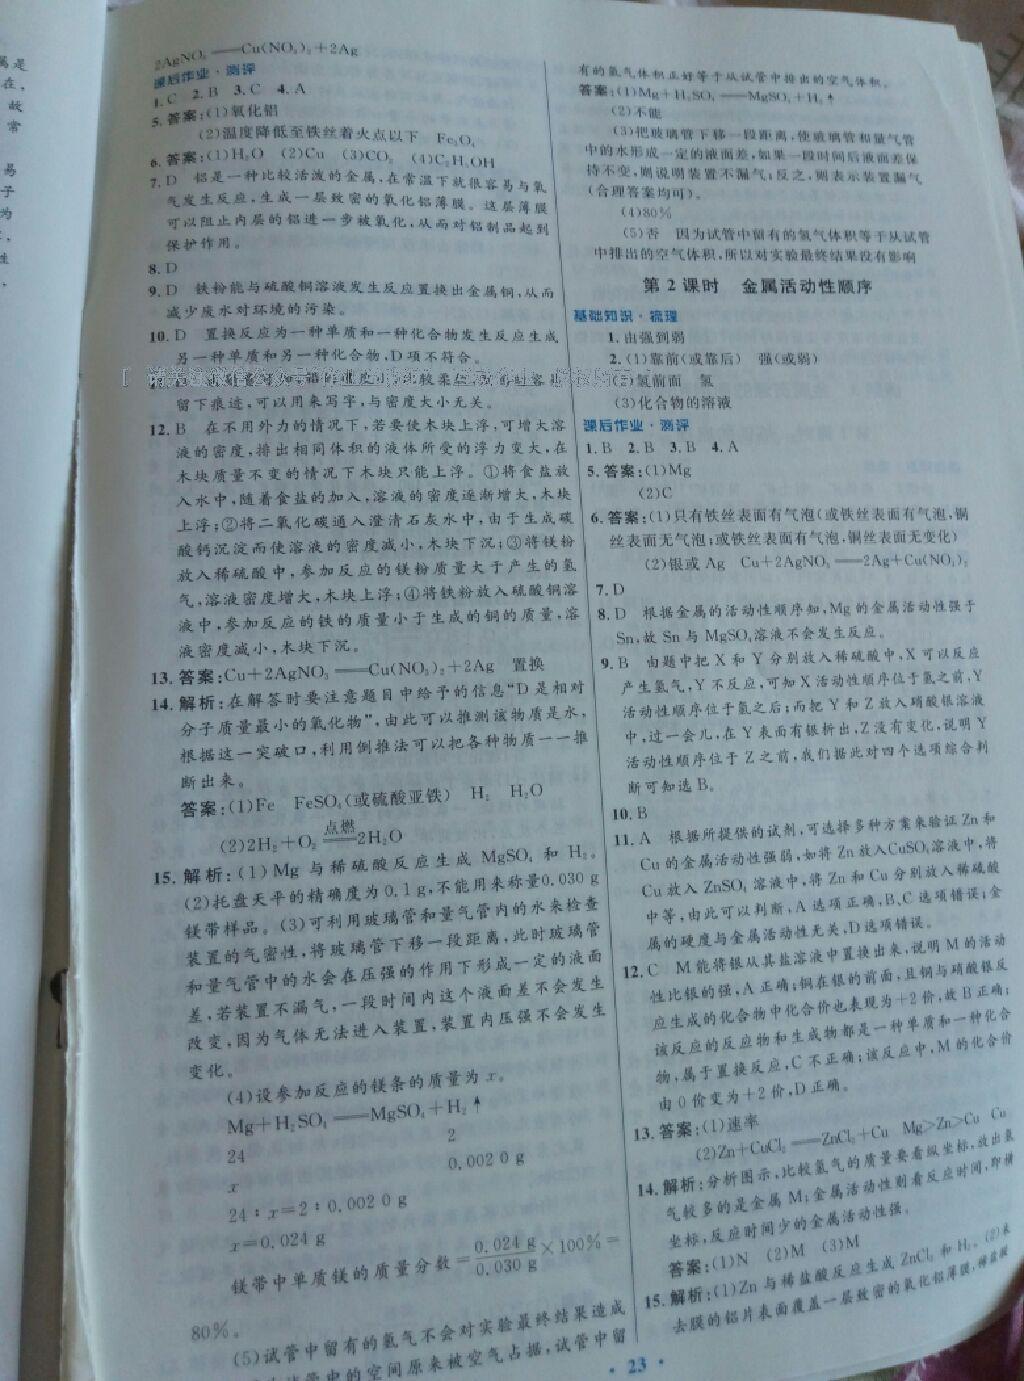 属是
在，
故
常
易
子
为
性
2AgNO₃══Cu(NO₃)₂＋2Ag
课后作业·测评
1. C　2. B　3. C　4. A
5. 答案:(1)氧化铝
(2)温度降低至铁丝着火点以下　Fe₃O₄
6. 答案:(1)H₂O　(2)Cu　(3)CO₂　(4)C₂H₅OH
7. D　铝是一种比较活泼的金属,在常温下就很容易与氧
气发生反应,生成一层致密的氧化铝薄膜。这层薄膜
可以阻止内层的铝进一步被氧化,从而对铝制品起到
保护作用。
8. D
9. D　铁粉能与硫酸铜溶液发生反应置换出金属铜,从而
减少废水对环境的污染。
10. D　置换反应为一种单质和一种化合物发生反应生成
另一种单质和另一种化合物,D项不符合。
留下痕迹,可以用来写字,与密度大小无关。
12. B　在不用外力的情况下,若要使木块上浮,可增大溶
液的密度,排出相同体积的液体所受的浮力变大,在
木块质量不变的情况下木块只能上浮。①将食盐放
入水中,随着食盐的加入,溶液的密度逐渐增大,木块
上浮;②将二氧化碳通入澄清石灰水中,由于生成碳
酸钙沉淀而使溶液的密度减小,木块下沉;③将镁粉
放入稀硫酸中,参加反应的镁粉质量大于产生的氢
气,溶液密度增大,木块上浮;④将铁粉放入硫酸铜溶
液中,参加反应的铁的质量小于生成的铜的质量,溶
液密度减小,木块下沉。
13. 答案:Cu＋2AgNO₃══Cu(NO₃)₂＋2Ag　置换
14. 解析:在解答时要注意题目中给予的信息“D是相对
分子质量最小的氧化物”,由此可以推测该物质是水,
根据这一突破口,利用倒推法可以把各种物质一一推
断出来。
答案:(1)Fe　FeSO₄(或硫酸亚铁)　H₂　H₂O
(2)2H₂＋O₂══点燃══2H₂O
15. 解析:(1)Mg 与稀硫酸反应生成 MgSO₄ 和 H₂。
(2)托盘天平的精确度为0.1 g,不能用来称量0.030 g
镁带样品。(3)可利用玻璃管和量气管内的水来检查
装置的气密性,将玻璃管下移一段距离,此时玻璃管
和量气管中的水会在压强的作用下形成一定的液面
差,若装置不漏气,一段时间内这个液面差不会发生
改变,因为气体无法进入装置,装置内压强不会发生
变化。
(4)设参加反应的镁条的质量为 x。
Mg＋H₂SO₄══MgSO₄＋H₂↑
24　2
x　0.002 0 g
24∶x＝2∶0.002 0 g
x＝0.024 g
镁带中单质镁的质量分数＝0.024 g/0.030 g×100%＝
80%。
(5)试管中留有的氢气不会对实验最终结果造成
管中的空间原来被空气占据,试管中留
有的氢气体积正好等于从试管中排出的空气体积。
答案:(1)Mg＋H₂SO₄══MgSO₄＋H₂↑
(2)不能
(3)把玻璃管下移一段距离,使玻璃管和量气管
中的水形成一定的液面差,如果一段时间后液面差保
持不变,则说明装置不漏气;反之,则表示装置漏气
(合理答案均可)。
(4)80%
(5)否　因为试管中留有的氢气体积等于从试管
中排出的空气体积,所以对实验最终结果没有影响
第2课时　金属活动性顺序
基础知识·梳理
1. 由强到弱
2. (1)靠前(或靠后)　强(或弱)
氢前面　氢
(3)化合物的溶液
课后作业·测评
1. B　2. B　3. B　4. A
5. 答案:(1)Mg
(2)C
6. 答案:(1)只有铁丝表面有气泡(或铁丝表面有气泡,铜
丝表面无气泡;或铁丝表面有气泡,铜丝表面无变化)
(2)银或 Ag　Cu＋2AgNO₃══2Ag＋Cu(NO₃)₂
7. D
8. D　根据金属的活动性顺序知,Mg的金属活动性强于
Sn,故 Sn 与 MgSO₄溶液不会发生反应。
9. B　由题中把 X 和 Y 分别放入稀硫酸中,X 可以反应
产生氢气,Y 不反应,可知 X 活动性顺序位于氢之前,Y
活动性顺序位于氢之后;而把 Y 和 Z 放入硝酸银溶液
中,过一会儿,在 Y 表面有银析出,Z 没有变化,说明 Y
活动性顺序位于 Z 之前,我们据此对四个选项综合判
断可知选 B。
10. B
11. A　根据所提供的试剂,可选择多种方案来验证 Zn 和
Cu 的金属活动性强弱,如将 Zn 放入CuSO₄溶液中,将
Cu 放入 ZnSO₄ 溶液中,将 Zn 和 Cu 分别放入稀硫酸
中等,由此可以判断,A 选项正确,B、C 选项错误;金
属的硬度与金属活动性无关,D选项错误。
12. C　M 能将银从其盐溶液中置换出来,说明 M 的活动
性比银的强,A 正确;铜在银的前面,且铜与硝酸银反
应生成的化合物中化合价也表现为＋2 价,故 B 正确;
该反应的反应物和生成物都是一种单质和一种化合
物,属于置换反应,C 不正确;该反应中,M 的化合价
由 0 价变为＋2 价,D 正确。
13. 答案:(1)速率
(2)Zn＋CuCl₂══ZnCl₂＋Cu　Mg>Zn>Cu　Cu
14. 解析:分析图示,比较氢气的质量要看纵坐标,放出氢
气较多的是金属 M;金属活动性则看反应时间,即横
坐标,反应时间少的金属活动性强。
答案:(1)N　(2)M　(3)M
15. 解析:(1)Zn 与稀盐酸反应生成 ZnCl₂ 和 H₂。(2)未
去膜的铝片表面覆盖一层致密的氧化铝薄膜,稀盐酸
·23·